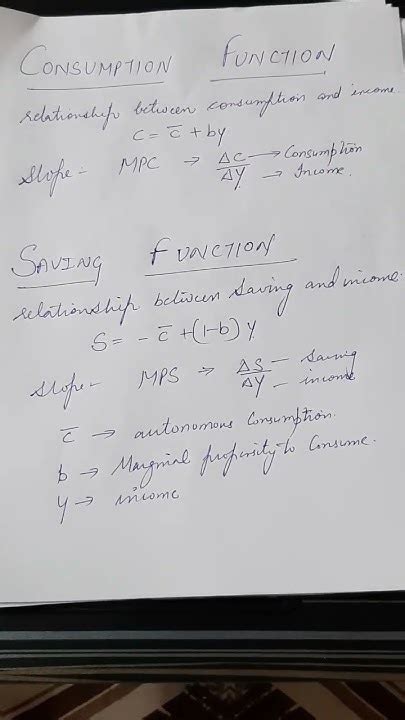 CONSUMPTION FUNCTION
relationship between consumption and income.
C = c̅ + by
Slope:- MPC → ΔC/ΔY → Consumption → Income.
SAVING FUNCTION
relationship between saving and income.
S = - c̅ + (1-b) Y
slope:- MPS → ΔS/ΔY - saving - income
c̅ → autonomous Consumption.
b → Marginal propensity to Consume.
Y → income